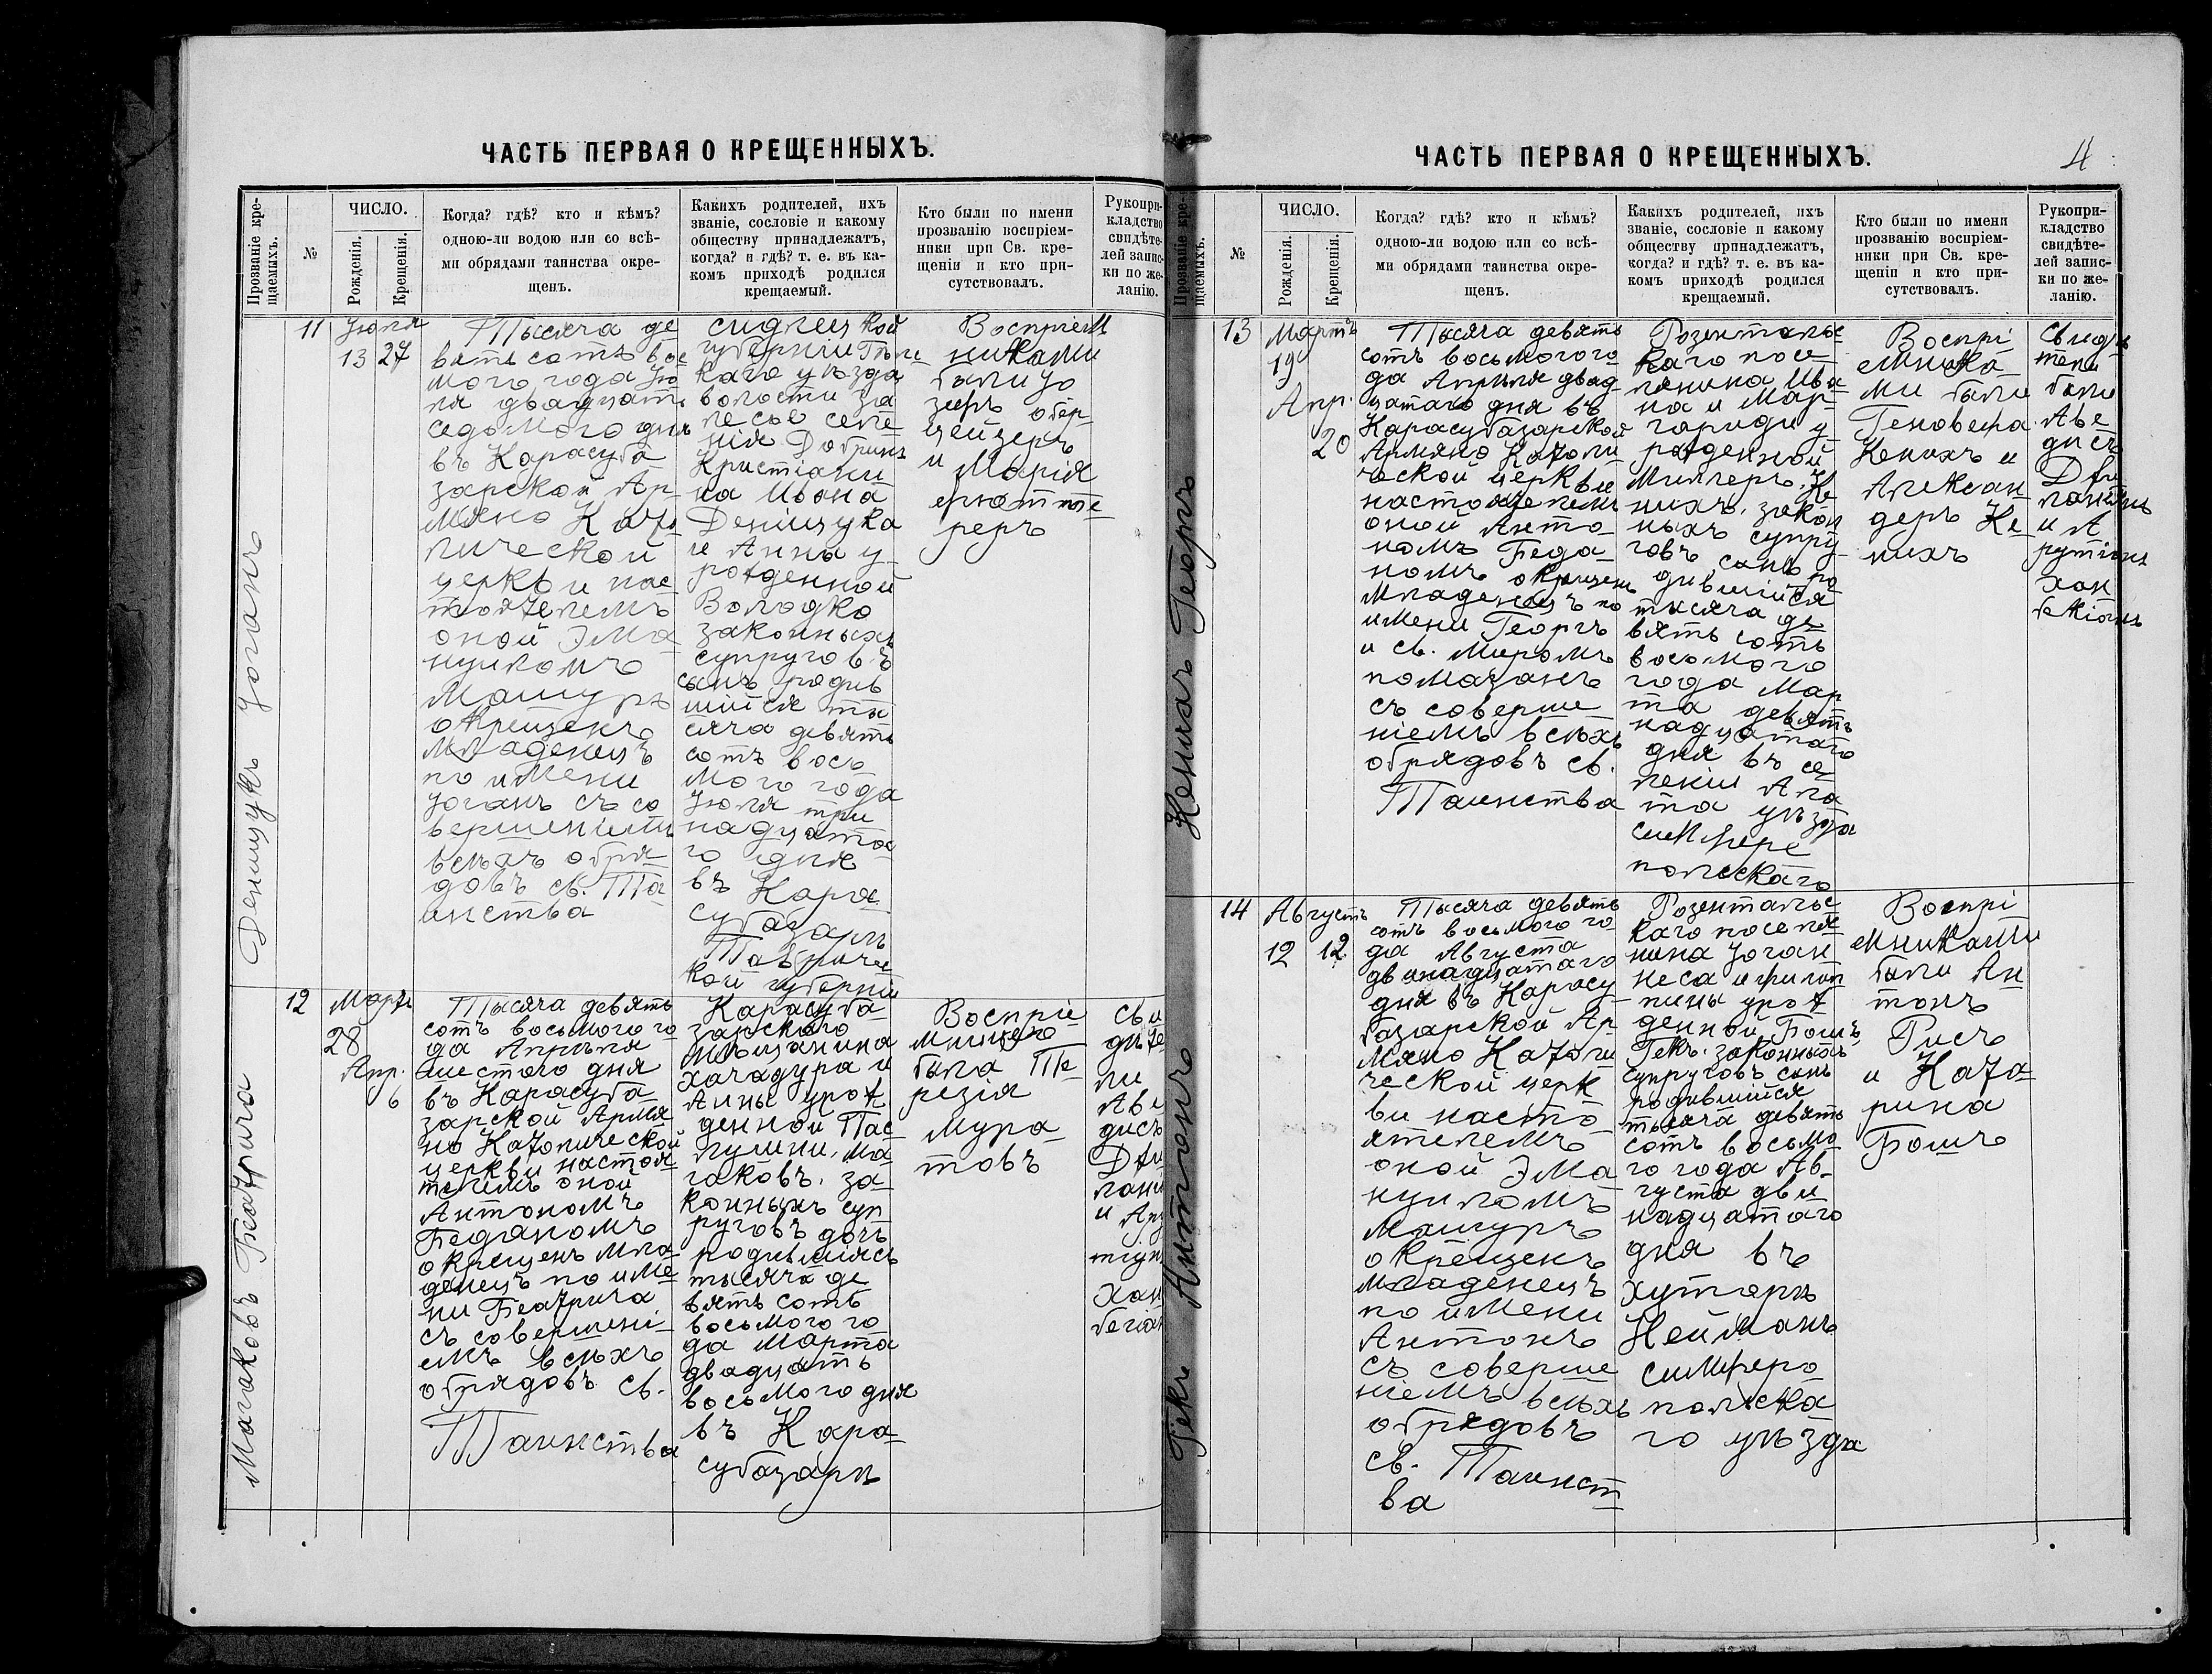 ЧАСТЬ ПЕРВАЯ О КРЕЩЕННЫХЪ.
Прозваніе кре-
щаемыхъ.
№
ЧИСЛО.
Рожденія.
Крещенія.
Когда? гдѣ? кто и кѣмъ?
одною-ли водою или со всѣ-
ми обрядами таинства окре-
щенъ.
Какихъ родителей, ихъ
званіе, сословіе и какому
обществу принадлежатъ,
когда? и гдѣ? т. е. въ ка-
комъ приходѣ родился
крещаемый.
Кто были по имени
прозванію воспріем-
ники при Св. кре-
щеніи и кто при-
сутствовалъ.
Рукопри-
кладство
свидѣте-
лей запис-
ки по же-
ланію.
Денищукъ Іоганъ
11
Іюля
13 27
Тысяча де
вять сотъ вос
мого года Ію
ля двадцать
седьмого дня
въ Карасуба
зарской Ар-
мяно Като
лической
церкви нас
тоятелемъ
оной Эма
нуиломъ
Машуръ
окрещенъ
младенецъ
по имени
Іоганъ съ со
вершеніемъ
всѣхъ обря
довъ св. Та
инства
сидлецкой
губерніи Бѣль
каго уѣзда
волости за
лесье селе
нія Добрынъ
Кристіани
на Ивана
Денищука
и Анны у
рожденной
Володко
законныхъ
супруговъ
сынъ родив
шійся ты
сяча девять
сотъ вось
мого года
Іюля три
надцато
го дня
въ Кара
субазарѣ
Таврическ
кой губерніи
Воспріем
никами
были Іо
зефъ обер-
цейзеръ
и Марія

реръ
Мачаковъ Беатриса
12
Марта
28
Апр.
6
Тысяча девять
сотъ восьмого го
да Апрѣля
шестого дня
въ Карасуба
зарской Армя
но Католической
церкви настоя
телемъ оной
Антономъ
Беданомъ
окрещенъ мла
денецъ по име
ни Беатриса
съ совершені
емъ всѣхъ
обрядовъ св.
Таинства
Карасуба
зарскаго
мѣщанина
хачадура и
Анны урож
денной Пас
лушни. Ма
чаковъ. за
конныхъ суп
руговъ дочь
родившіясь
тысяча де
вять сотъ
восьмого го
да Марта
двадцать
восьмого дня
въ Кара
субазарѣ
Воспріе
мницею
была Те
резія
Мура
товъ
Сви
дѣте
ли
Аве
дисъ

и
Хан
бегіан
ЧАСТЬ ПЕРВАЯ О КРЕЩЕННЫХЪ.
4
Прозваніе кре-
щаемыхъ.
№
ЧИСЛО.
Рожденія.
Крещенія.
Когда? гдѣ? кто и кѣмъ?
одною-ли водою или со всѣ-
ми обрядами таинства окре-
щенъ.
Какихъ родителей, ихъ
званіе, сословіе и какому
обществу принадлежатъ,
когда? и гдѣ? т. е. въ ка-
комъ приходѣ родился
крещаемый.
Кто были по имени
прозванію воспріем-
ники при Св. кре-
щеніи и кто при-
сутствовалъ.
Рукопри-
кладство
свидѣте-
лей запис-
ки по же-
ланію.
Кенихъ Георгъ
13
Мартъ
19
Апр.
20
Тысяча девять
сотъ восьмого го
да Апрѣля двад
цатаго дня въ
Карасубазарской
Армяно Католи
ческой церкви
настоятелемъ
оной Анто
номъ Беда
номъ окрещенъ
младенецъ по
имени Георгъ
и св. Миромъ
помазанъ
съ соверше
ніемъ всѣхъ
обрядовъ св.
Таинства
Розентальс
каго посе
лянина Ива
на и Мар
гариды у
рожденной
Миллеръ. Ке
нихъ. закон
ныхъ супру
говъ сынъ ро
дившійся
тысяча де
вять сотъ
восьмого
года Мар
та девят
надцатаго
дня въ се
леніи Апа
та уѣзда
симферо
польскаго
Воспрі
емника
ми были
Геновефа
Кенихъ и
Александ
деръ Ке
нихъ
Свидѣ
тели
были
Аве
дисъ

и А
рутіанъ
хан
бекіанъ
Гекъ Антонъ
14
Августъ
12 12
Тысяча девять
сотъ восьмого го
да Августа
двинадцатаго
дня въ Карасу
базарской Ар
мяно Католи
ческой церк
ви насто
ятелемъ
оной Эма
нуиломъ
Машуръ
окрещенъ
младенецъ
по имени
Антонъ
съ соверше
ніемъ всѣхъ
обрядовъ
св. Таинст
ва
Розентальс
каго поселя
нина Іоган
неса и филип
пины урож
денной Бошъ
Гекъ. законныхъ
супруговъ сынъ
родившійся
тысяча девять
сотъ восьмо
го года Ав-
густа дви
надцатаго
дня въ
хуторѣ
Нейманъ
симферо
польска
го уѣзда
Воспрі
емниками
были Ан
тонъ
Рисъ
и Ката
рина
Бошъ